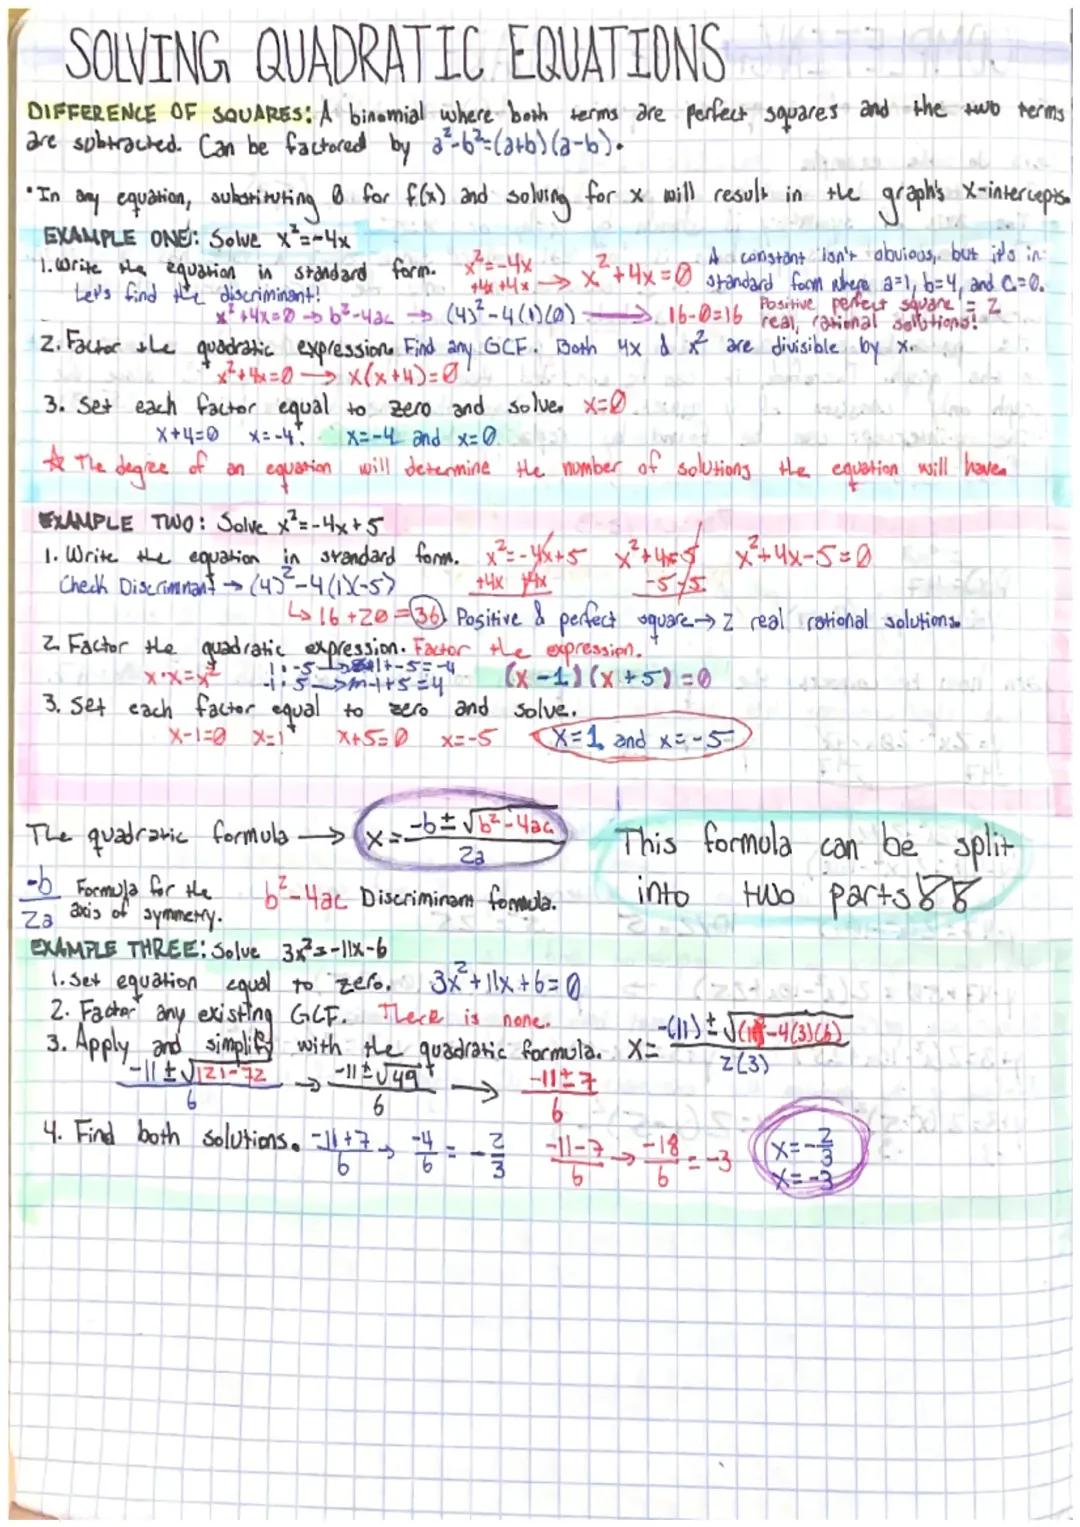 SOLVING QUADRATIC EQUATIONS
DIFFERENCE OF SQUARES: A binomial where both terms are perfect squares and the two terms
are subtracted. Can be factored by a²-b²=(a+b)(a-b).
•In any equation, substituting 0 for f(x) and solving for x will result in the graph's x-intercepts.
EXAMPLE ONE: Solve x²=-4x
1. Write the equation in standard form. x²=-4x → x²+4x=0
+4x +4x
A constant isn't obvious, but it's in
standard form where a=1, b=4, and C=0.
Let's find the discriminant!
x²+4x=0 → b²-4ac → (4)²-4(1)(0) → 16-0=16 Positive perfect square = 2
real, rational solutions!
2. Factor the quadratic expression. Find any GCF. Both 4x & x² are divisible by x.
x²+4x=0 → x(x+4)=0
3. Set each factor equal to zero and solve. x=0
x+4=0 x=-4. x=-4 and x=0
☆ The degree of an equation will determine the number of solutions the equation will have.
EXAMPLE TWO: Solve x²=-4x+5
1. Write the equation in standard form. x²=-4x+5 x²+4x=5 x²+4x-5=0
+4x +4x -5 -5
Check Discriminant → (4)²-4(1)(-5)
↳ 16+20=36. Positive & perfect square → 2 real rational solutions.
2. Factor the quadratic expression. Factor the expression.
x·x=x² 1·-5 → 1+-5=-4 (x-1)(x+5)=0
-1·5 → -1+5=4
3. Set each factor equal to zero and solve.
x-1=0 x=1 x+5=0 x=-5 x=1 and x=-5
The quadratic formula → x=-b±√b²-4ac
2a
This formula can be split
into two parts
-b Formula for the
2a axis of symmetry.
b²-4ac Discriminant formula.
EXAMPLE THREE: Solve 3x²=-11x-6
1. Set equation equal to zero. 3x²+11x+6=0
2. Factor any existing GCF. There is none.
3. Apply and simplify with the quadratic formula. x= -(11)±√(11)²-4(3)(6)
2(3)
-11±√121-72 → -11±√49 → -11±7
6 6 6
4. Find both solutions. -11+7 → -4 = -2 -11-7 → -18 = -3
6 6 3 6 6
x=-2/3
x=-3